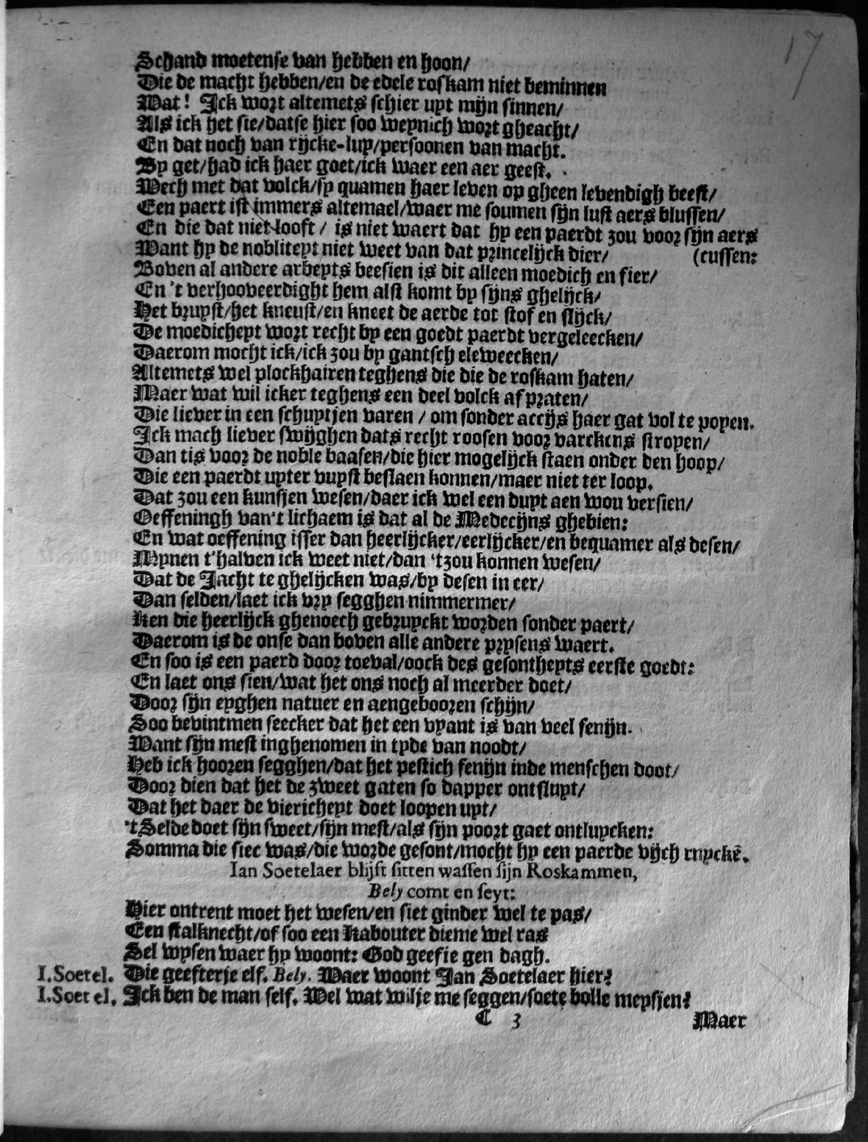 17
Schand moetense van hebben en hoon/
Die de macht hebben/en de edele roskam niet beminnen
Wat! Ick wort altemets schier uyt mijn sinnen/
Als ick het sie/datse hier soo weynich wort gheacht/
En dat noch van rijcke-luy/persoonen van macht.
By get/had ick haer goet/ick waer een aer geest.
Wech met dat volck/sy quamen haer leven op gheen levendigh beest/
Een paert ist immers altemael/waer me soumen sijn lust aers blussen/
En die dat niet looft / is niet waert dat hy een paerdt zou voor sijn aers
Want hy de nobliteyt niet weet van dat princelijck dier/ (cussen:
Boven al andere arbeyts beesien is dit alleen moedich en fier/
En 't verhooveerdight hem alst komt by sijns ghelijck/
Het bruyst/het kneust/en kneet de aerde tot stof en slijck/
De moedicheyt wort recht by een goedt paerdt vergeleecken/
Daerom mocht ick/ick zou by gantsch eleweecken/
Altemets wel plockhairen teghens die die de roskam haten/
Maer wat wil icker teghens een deel volck af praten/
Die liever in een schuytjen varen / om sonder accijs haer gat vol te poyen.
Ick mach liever swijghen dats recht roosen voor varckens stropen/
Dan tis voor de noble baasen/die hier mogelijck staen onder den hoop/
Die een paerdt uyter vuyst beslaen konnen/maer niet ter loop.
Dat zou een kunsjen wesen/daer ick wel een duyt aen wou versien/
Oeffeningh van't lichaem is dat al de Medecijns ghebien:
En wat oeffening isser dan heerlijcker/eerlijcker/en bequamer als desen/
Mynen t'halven ick weet niet/dan 'tzou konnen wesen/
Dat de Jacht te ghelijcken was/by desen in eer/
Dan selden/laet ick vry segghen nimmermer/
Ken die heerlijck ghenoech gebruyckt worden sonder paert/
Daerom is de onse dan boven alle andere prysens waert.
En soo is een paerd door toeval/oock des gesontheyts eerste goedt:
En laet ons sien/wat het ons noch al meerder doet/
Door sijn eyghen natuer en aengebooren schijn/
Soo bevintmen seecker dat het een vyant is van veel fenijn.
Want sijn mest inghenomen in tyde van noodt/
Heb ick hooren segghen/dat het pestich fenijn inde menschen doot/
Door dien dat het de zweet gaten so dapper ontsluyt/
Dat het daer de vierichept doet loopen uyt/
't Selde doet sijn sweet/sijn mest/als sijn poort gaet ontluycken:
Somma die siec was/die worde gesont/mocht hy een paerde vijch ruyckē.
Ian Soetelaer blijft sitten wassen sijn Roskammen,
Bely comt en seyt:
Hier ontrent moet het wesen/en siet ginder wel te pas/
Een stalknecht/of soo een Kabouter dieme wel ras
Sel wysen waer hy woont: God geefje gen dagh.
I.Soetel. Die geefterje elf. Bely. Waer woont Jan Soetelaer hier?
I.Soetel. Ick ben de man self. Wel wat wilje me seggen/soete bolle meysjen?
C 3 Maer